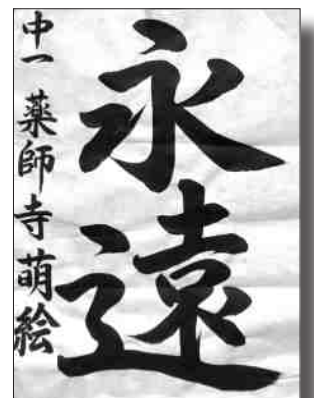 永遠
中一 薬師寺萌絵